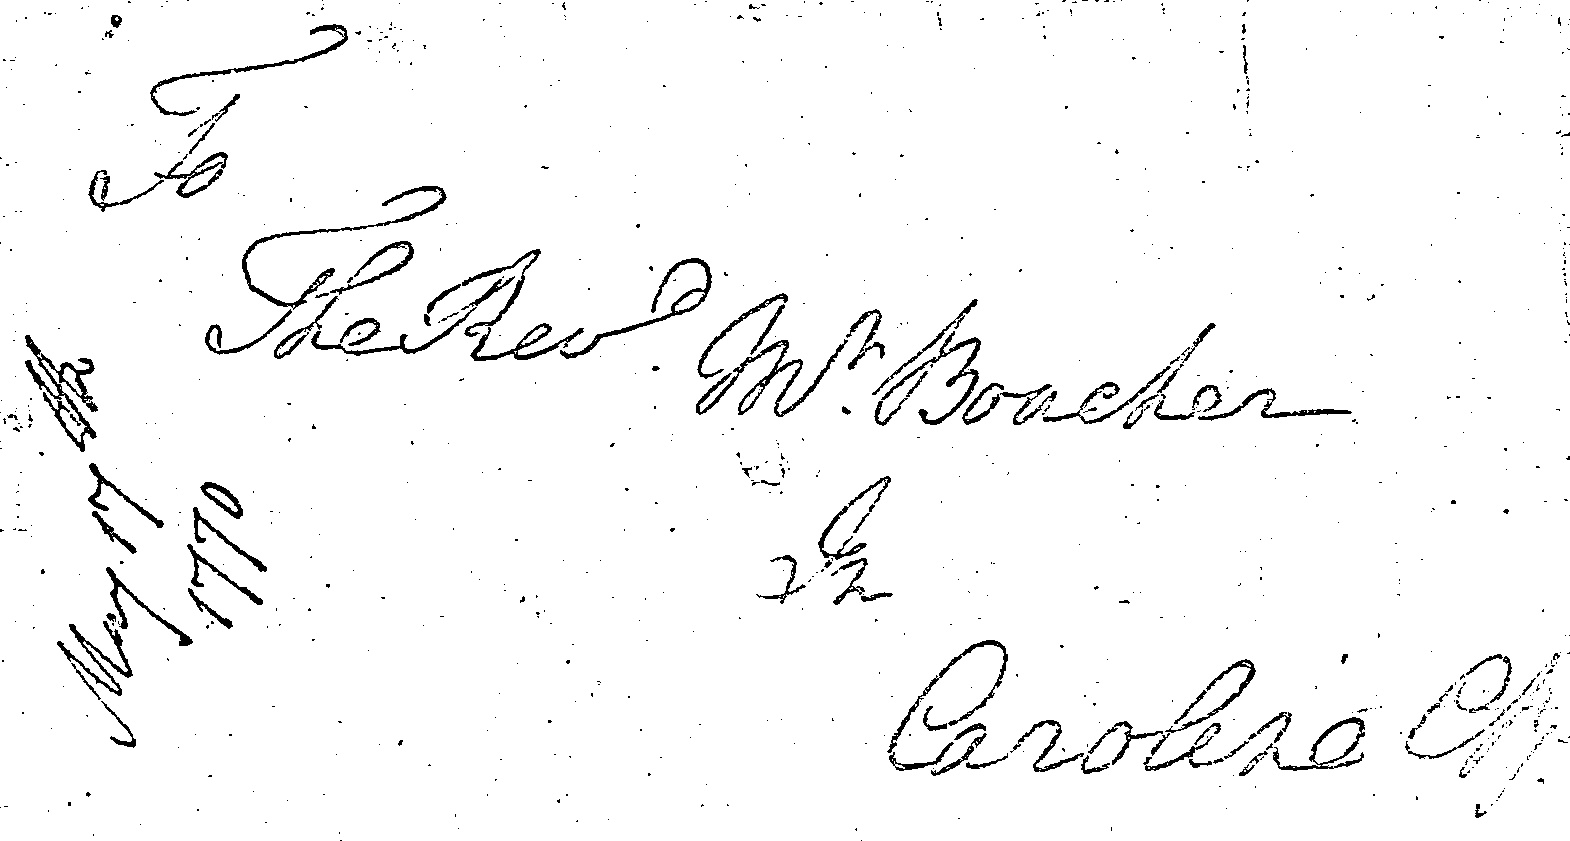 To
The Revd. Mr. Boucher
In
Caroline Cty.
May 17th
1770